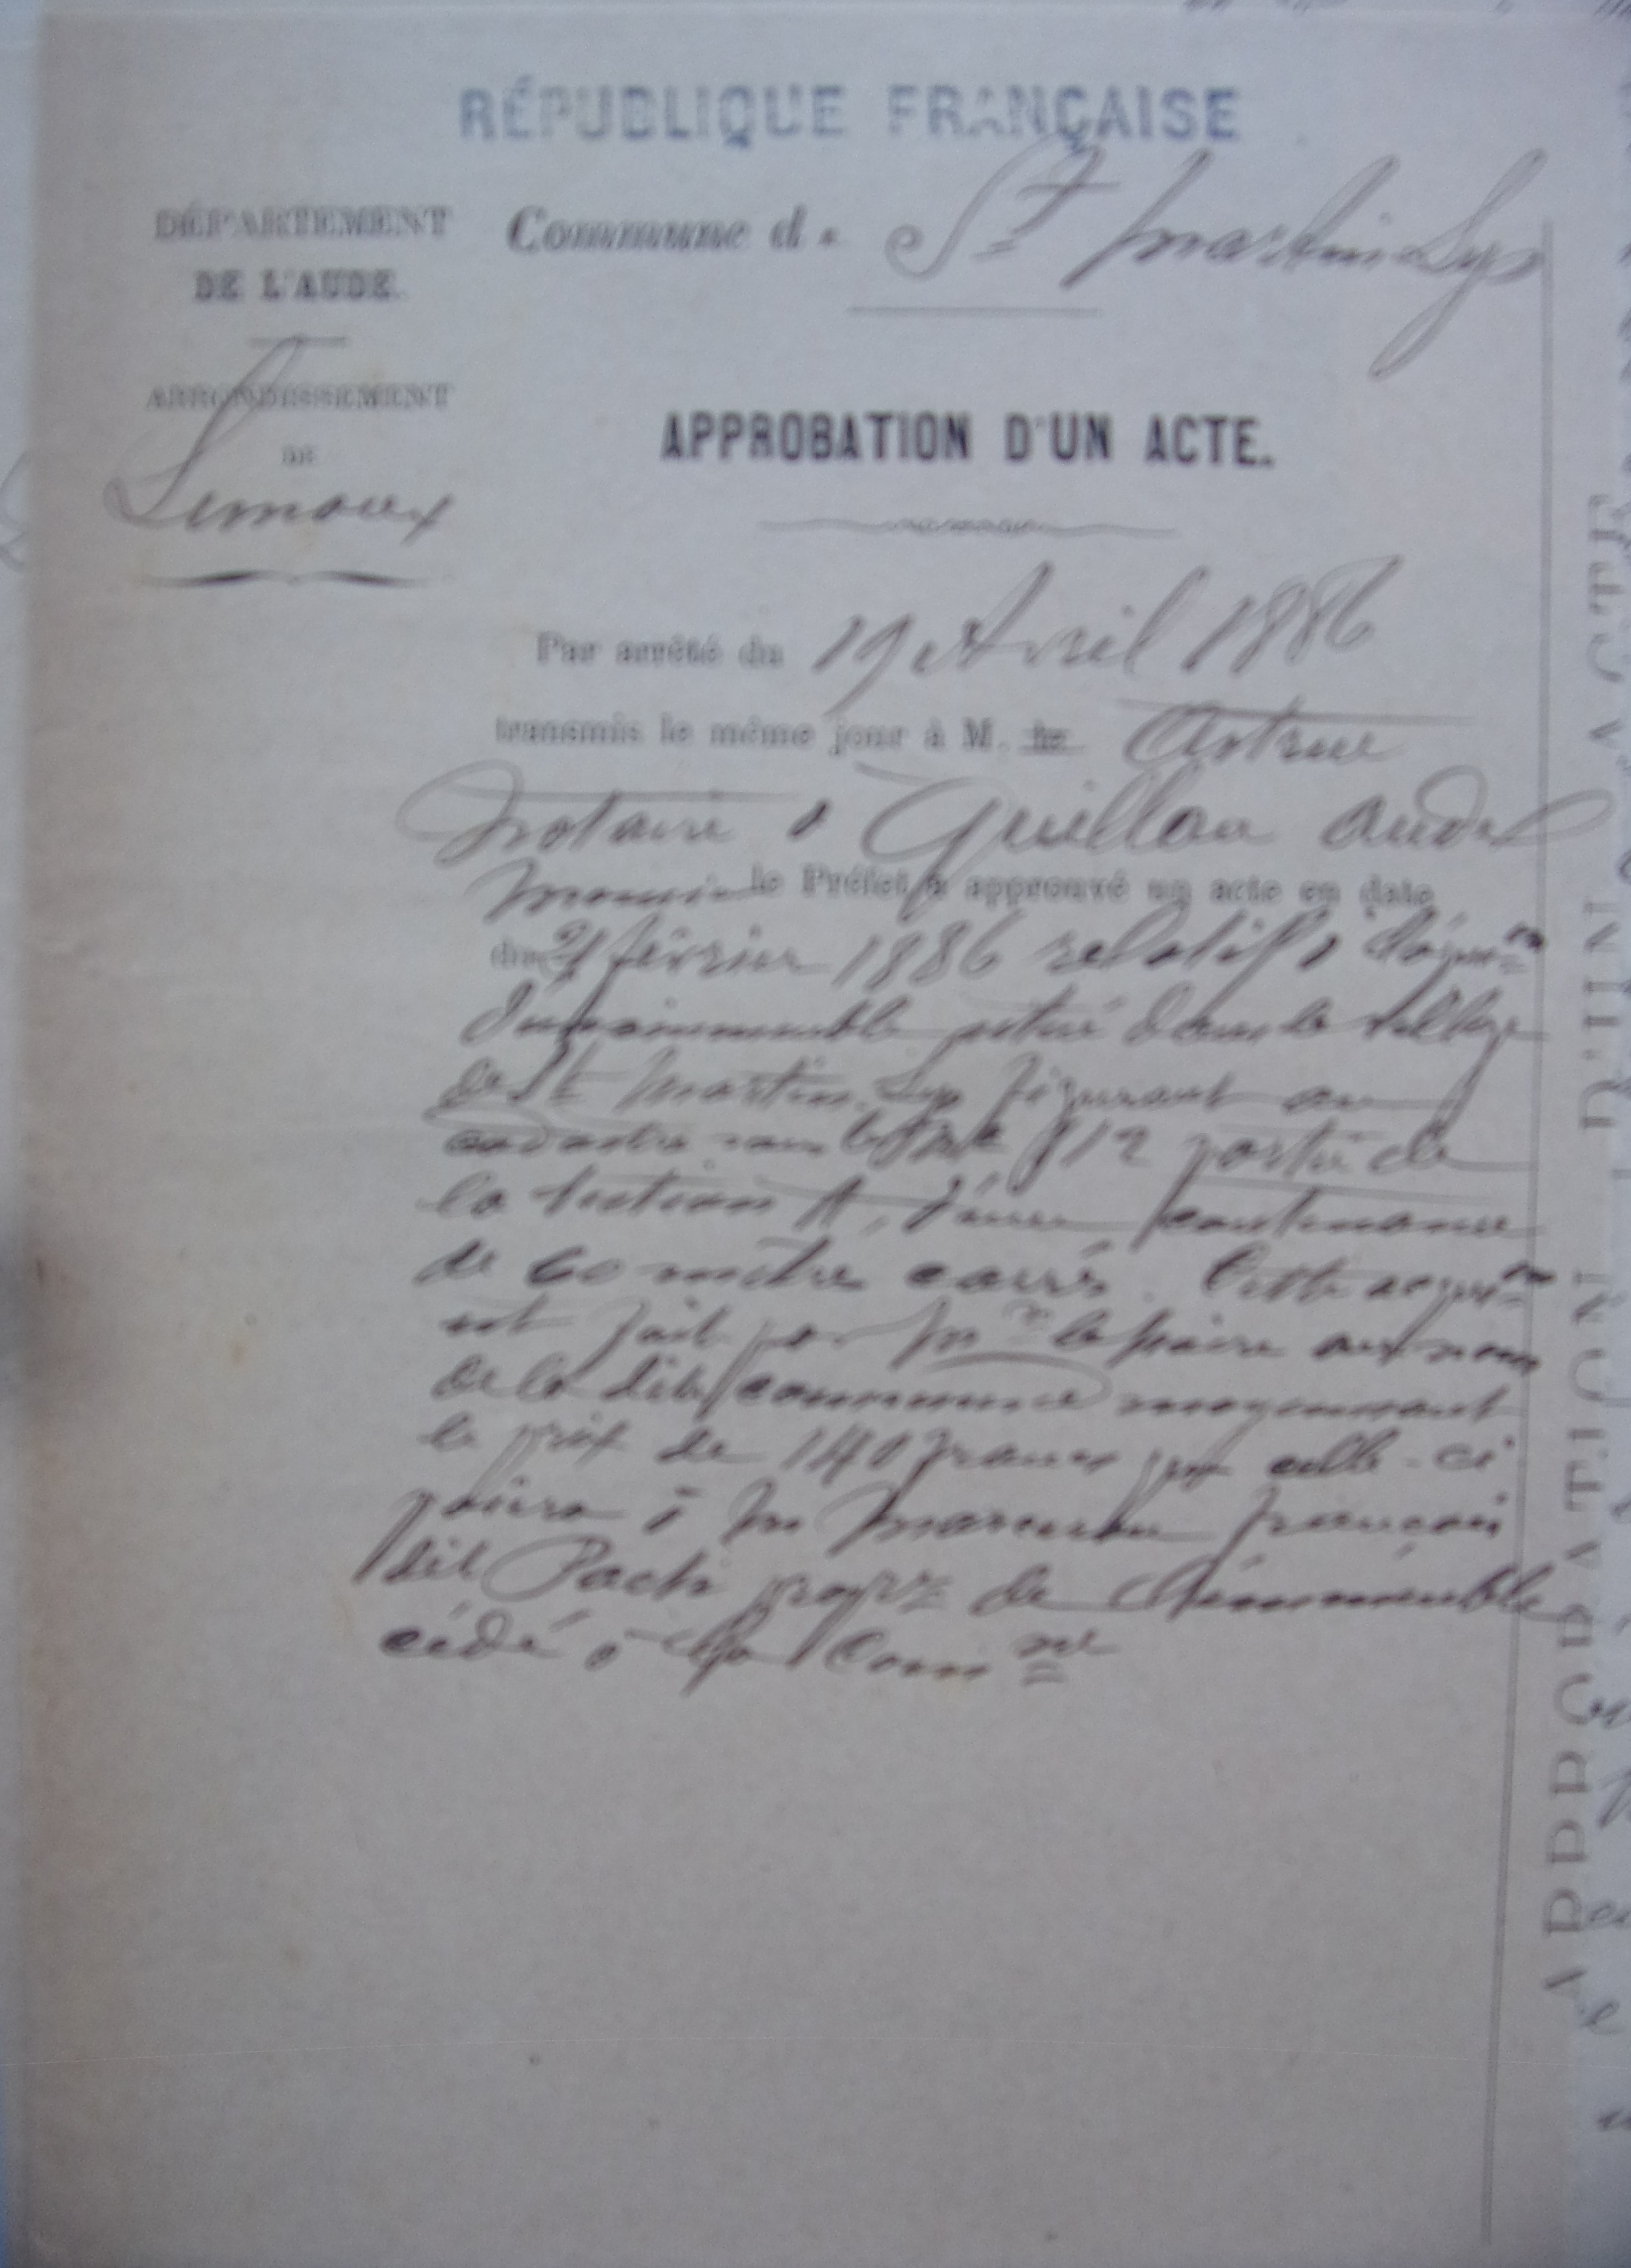 RÉPUBLIQUE FRANÇAISE
DÉPARTEMENT
DE L'AUDE.
Commune d e St Martin Lys
ARRONDISSEMENT
DE
Limoux
APPROBATION D'UN ACTE.
Par arrêté du 19 Avril 1886
transmis le même jour à M. le Astrue
notaire à Quillan Aude
le Préfet a approuvé un acte en date
du 21 février 1886 relatif à l'aquion
d'un immeuble situé dans le village
de St Martin Lys figurant au
cadastre sous le 812 partie de
la section A, d'une contenance
de 60 mètre carrés. Cette acquion
est fait par Mr le Maire au nom
de la dite commune moyennant
le prix de 140 francs que celle-ci
paiera à Mr François
dit Pach propre de l'immeuble
cédé à la Comne
APPROBATION D'UN ACTE